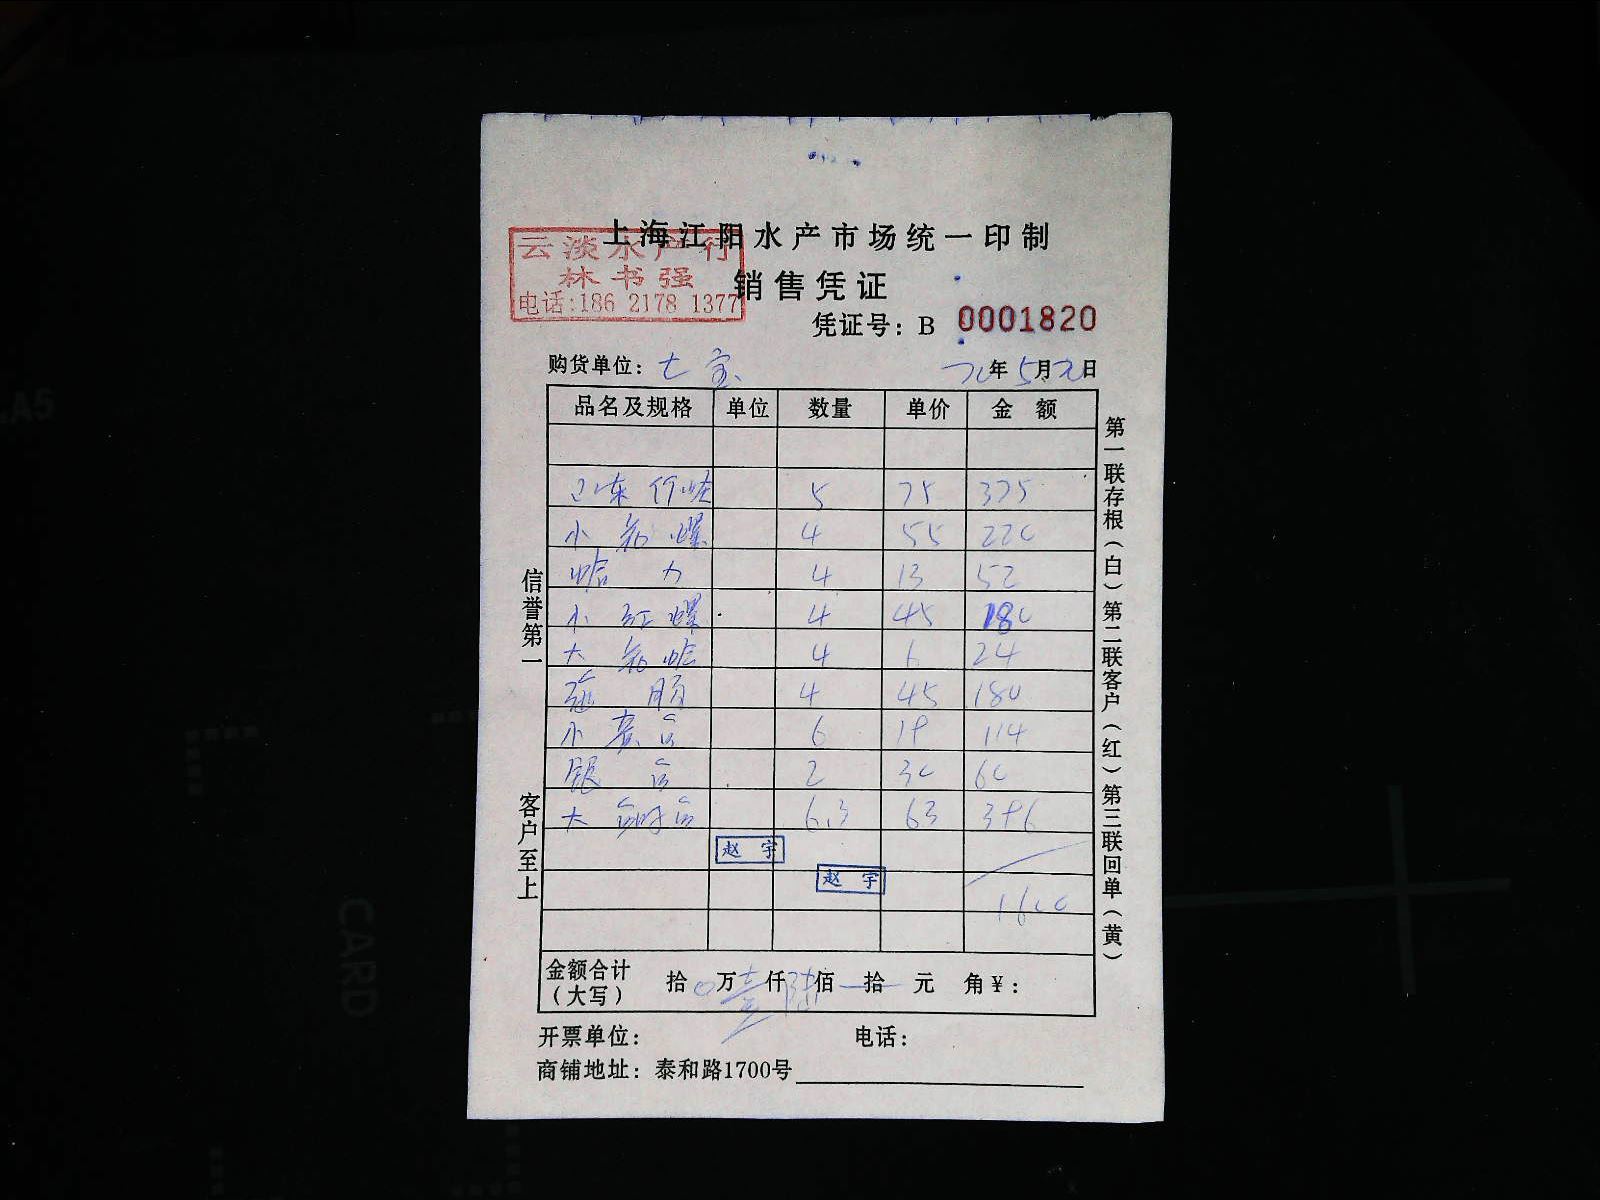 上海江阳水产市场统一印制
云淡水产行
林书强
电话:186 2178 1377
销售凭证
凭证号: B 0001820
购货单位: 七宝 年5月 日
品名及规格 单位 数量 单价 金额
5 75 375
小 螺 4 55 220
哈 力 4 13 52
小 红 螺 4 45 180
大 哈 4 6 24
4 45 180
小 6 19 114
银 2 30 60
大 6.3 63 396
赵宇
赵宇
1600
金额合计(大写) 拾 0 万 壹 仟 陆 佰 拾 元 角 ¥:
开票单位: 电话:
商铺地址: 泰和路1700号
信誉第一
客户至上
第一联存根(白)第二联客户(红)第三联回单(黄)